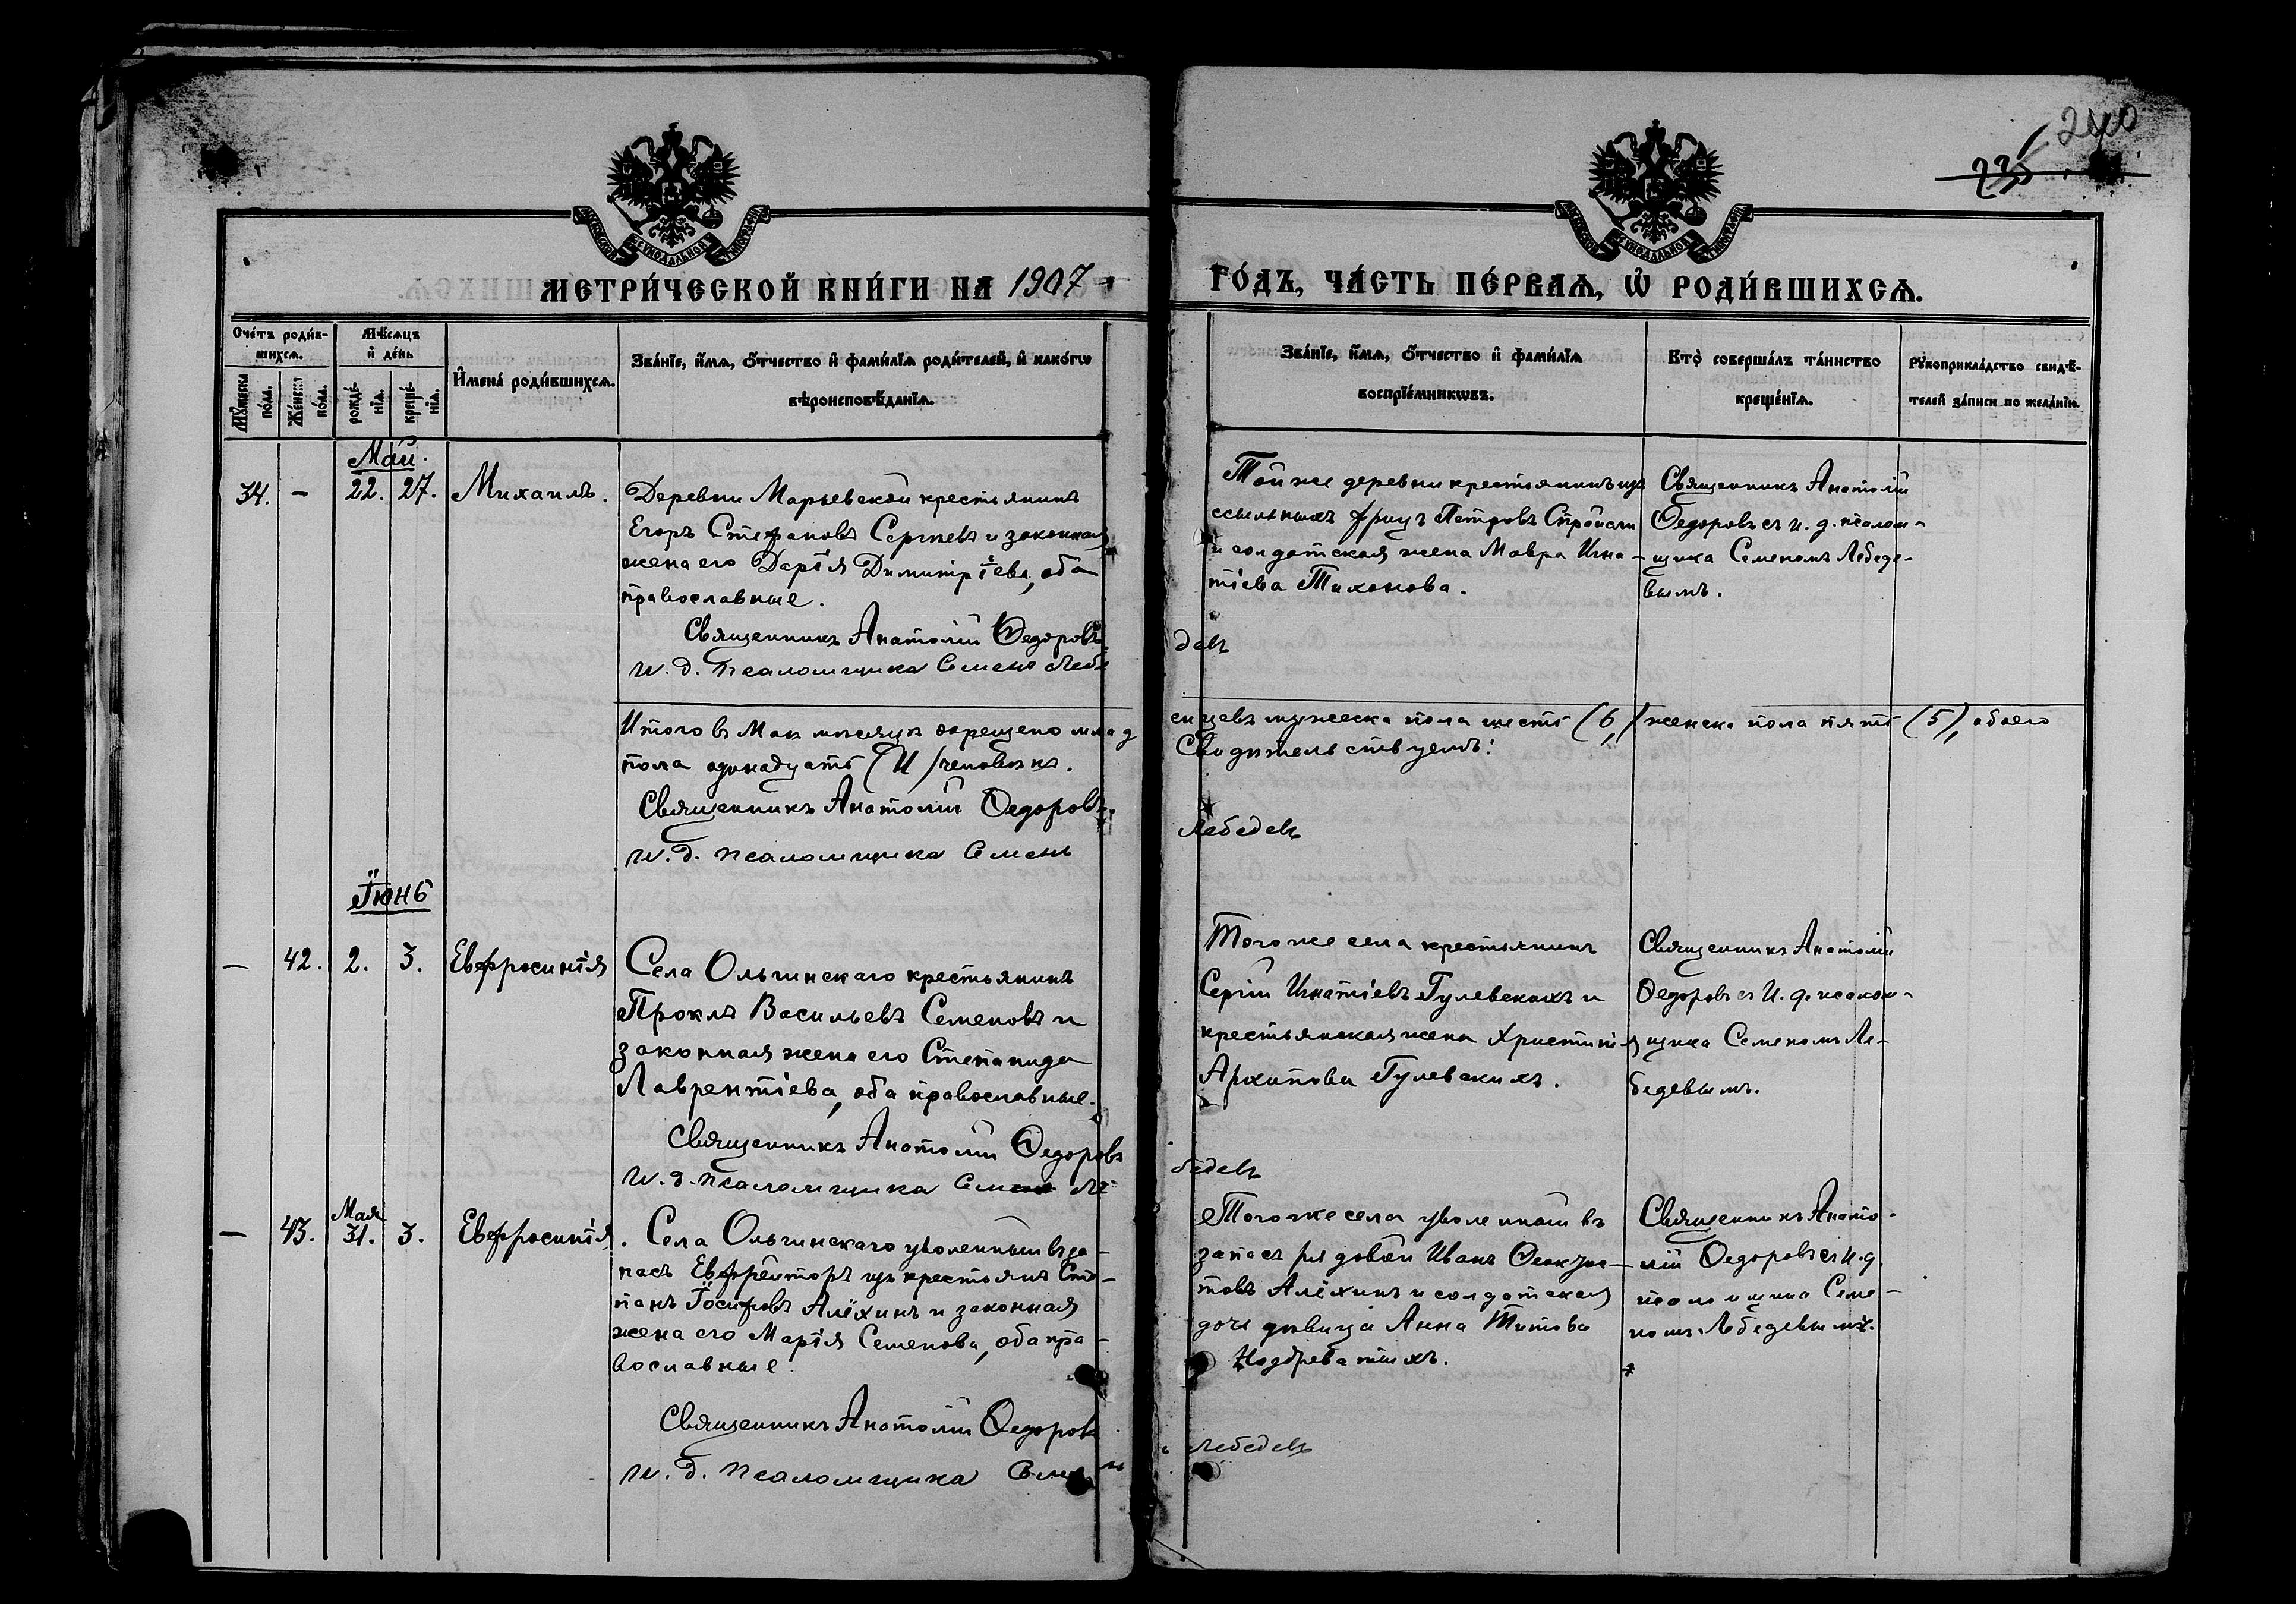 240
235
МЕТРИ́ЧЕСКОЙ КНИ́ГИ НА 1907
ГО́ДЪ, ЧА́СТЬ ПЕ́РВАѦ, Ѡ҆ РОДИ́ВШИХСѦ.
Сче́тъ роди́в-
шихсѧ.
Мѣ́сѧцъ
и҆ де́нь
Мꙋ́жеска
по́ла.
Же́нска
по́ла.
рожде́-
нїѧ.
креще́-
нїѧ.
И҆мена́ роди́вшихсѧ.
Зва́нїе, и҆́мѧ, ѻ҆́тчество и҆ фами́лїѧ роди́телей, и҆ како́гѡ
вѣроисповѣ́данїѧ.
Зва́нїе, и҆́мѧ, ѻ҆́тчество и҆ фами́лїѧ
воспрїе́мникѡвъ.
Кто̀ соверша́лъ та́инство
креще́нїѧ.
Рꙋкоприкла́дство свидѣ́-
телей за́писи по жела́нїю.
Май.
34. - 22. 27. Михаилъ.
Деревни Марьевской крестьянинъ
Егоръ Стефановъ Сергѣевъ и законная
жена его Дарія Димитріева, оба
православные.
Священникъ Анатолій Ѳедоровъ
И. д. псаломщика Семенъ Лебе
девъ
Той же деревни крестьянинъ изъ
ссыльныхъ Фрицъ Петровъ
и солдатская жена Мавра Игна-
тіева Тихонова.
Священникъ Анатолій
Ѳедоровъ съ и. д. псалом-
щика Семеномъ Лебеде-
вымъ.
Итого въ Маѣ мѣсяцѣ окрещено млад
енцевъ мужеска пола шесть (6), женска пола пять (5), обоего
пола одинадцать (11) человѣкъ.
Свидѣтельствуемъ:
Священникъ Анатолій Ѳедоровъ.
И. д. псаломщика Семенъ
Лебедевъ
Іюнь
- 42. 2. 3. Евфросинія
Села Ольгинскаго крестьянинъ
Проклъ Васильевъ Семеновъ и
законная жена его Степанида
Лаврентіева, оба православные.
Священникъ Анатолій Ѳедоровъ
И. д. псаломщика Семенъ Ле
бедевъ
Того же села крестьянинъ
Сергій Игнатіевъ Гулевскихъ и
крестьянская жена Христинія
Архипова Гулевскихъ.
Священникъ Анатолій
Ѳедоровъ съ И. д. псалом-
щика Семеномъ Ле-
бедевымъ.
Мая
- 43. 31. 3. Евфросинія.
Села Ольгинскаго уволенный въ за-
пасъ Евфрейторъ изъ крестьянъ Сте-
панъ Іосифовъ Алёхинъ и законная
жена его Марія Семенова, оба пра-
вославные.
Священникъ Анатолій Ѳедоровъ
И. д. псаломщика Семенъ
Лебедевъ
Того же села уволенный въ
запасъ рядовой Иванъ Ѳеоктис-
товъ Алёхинъ и солдатская
дочь дѣвица Анна Титова
Ноздреватыхъ.
Священникъ Анато-
лій Ѳедоровъ съ и. д.
псаломщика Семе-
номъ Лебедевымъ.